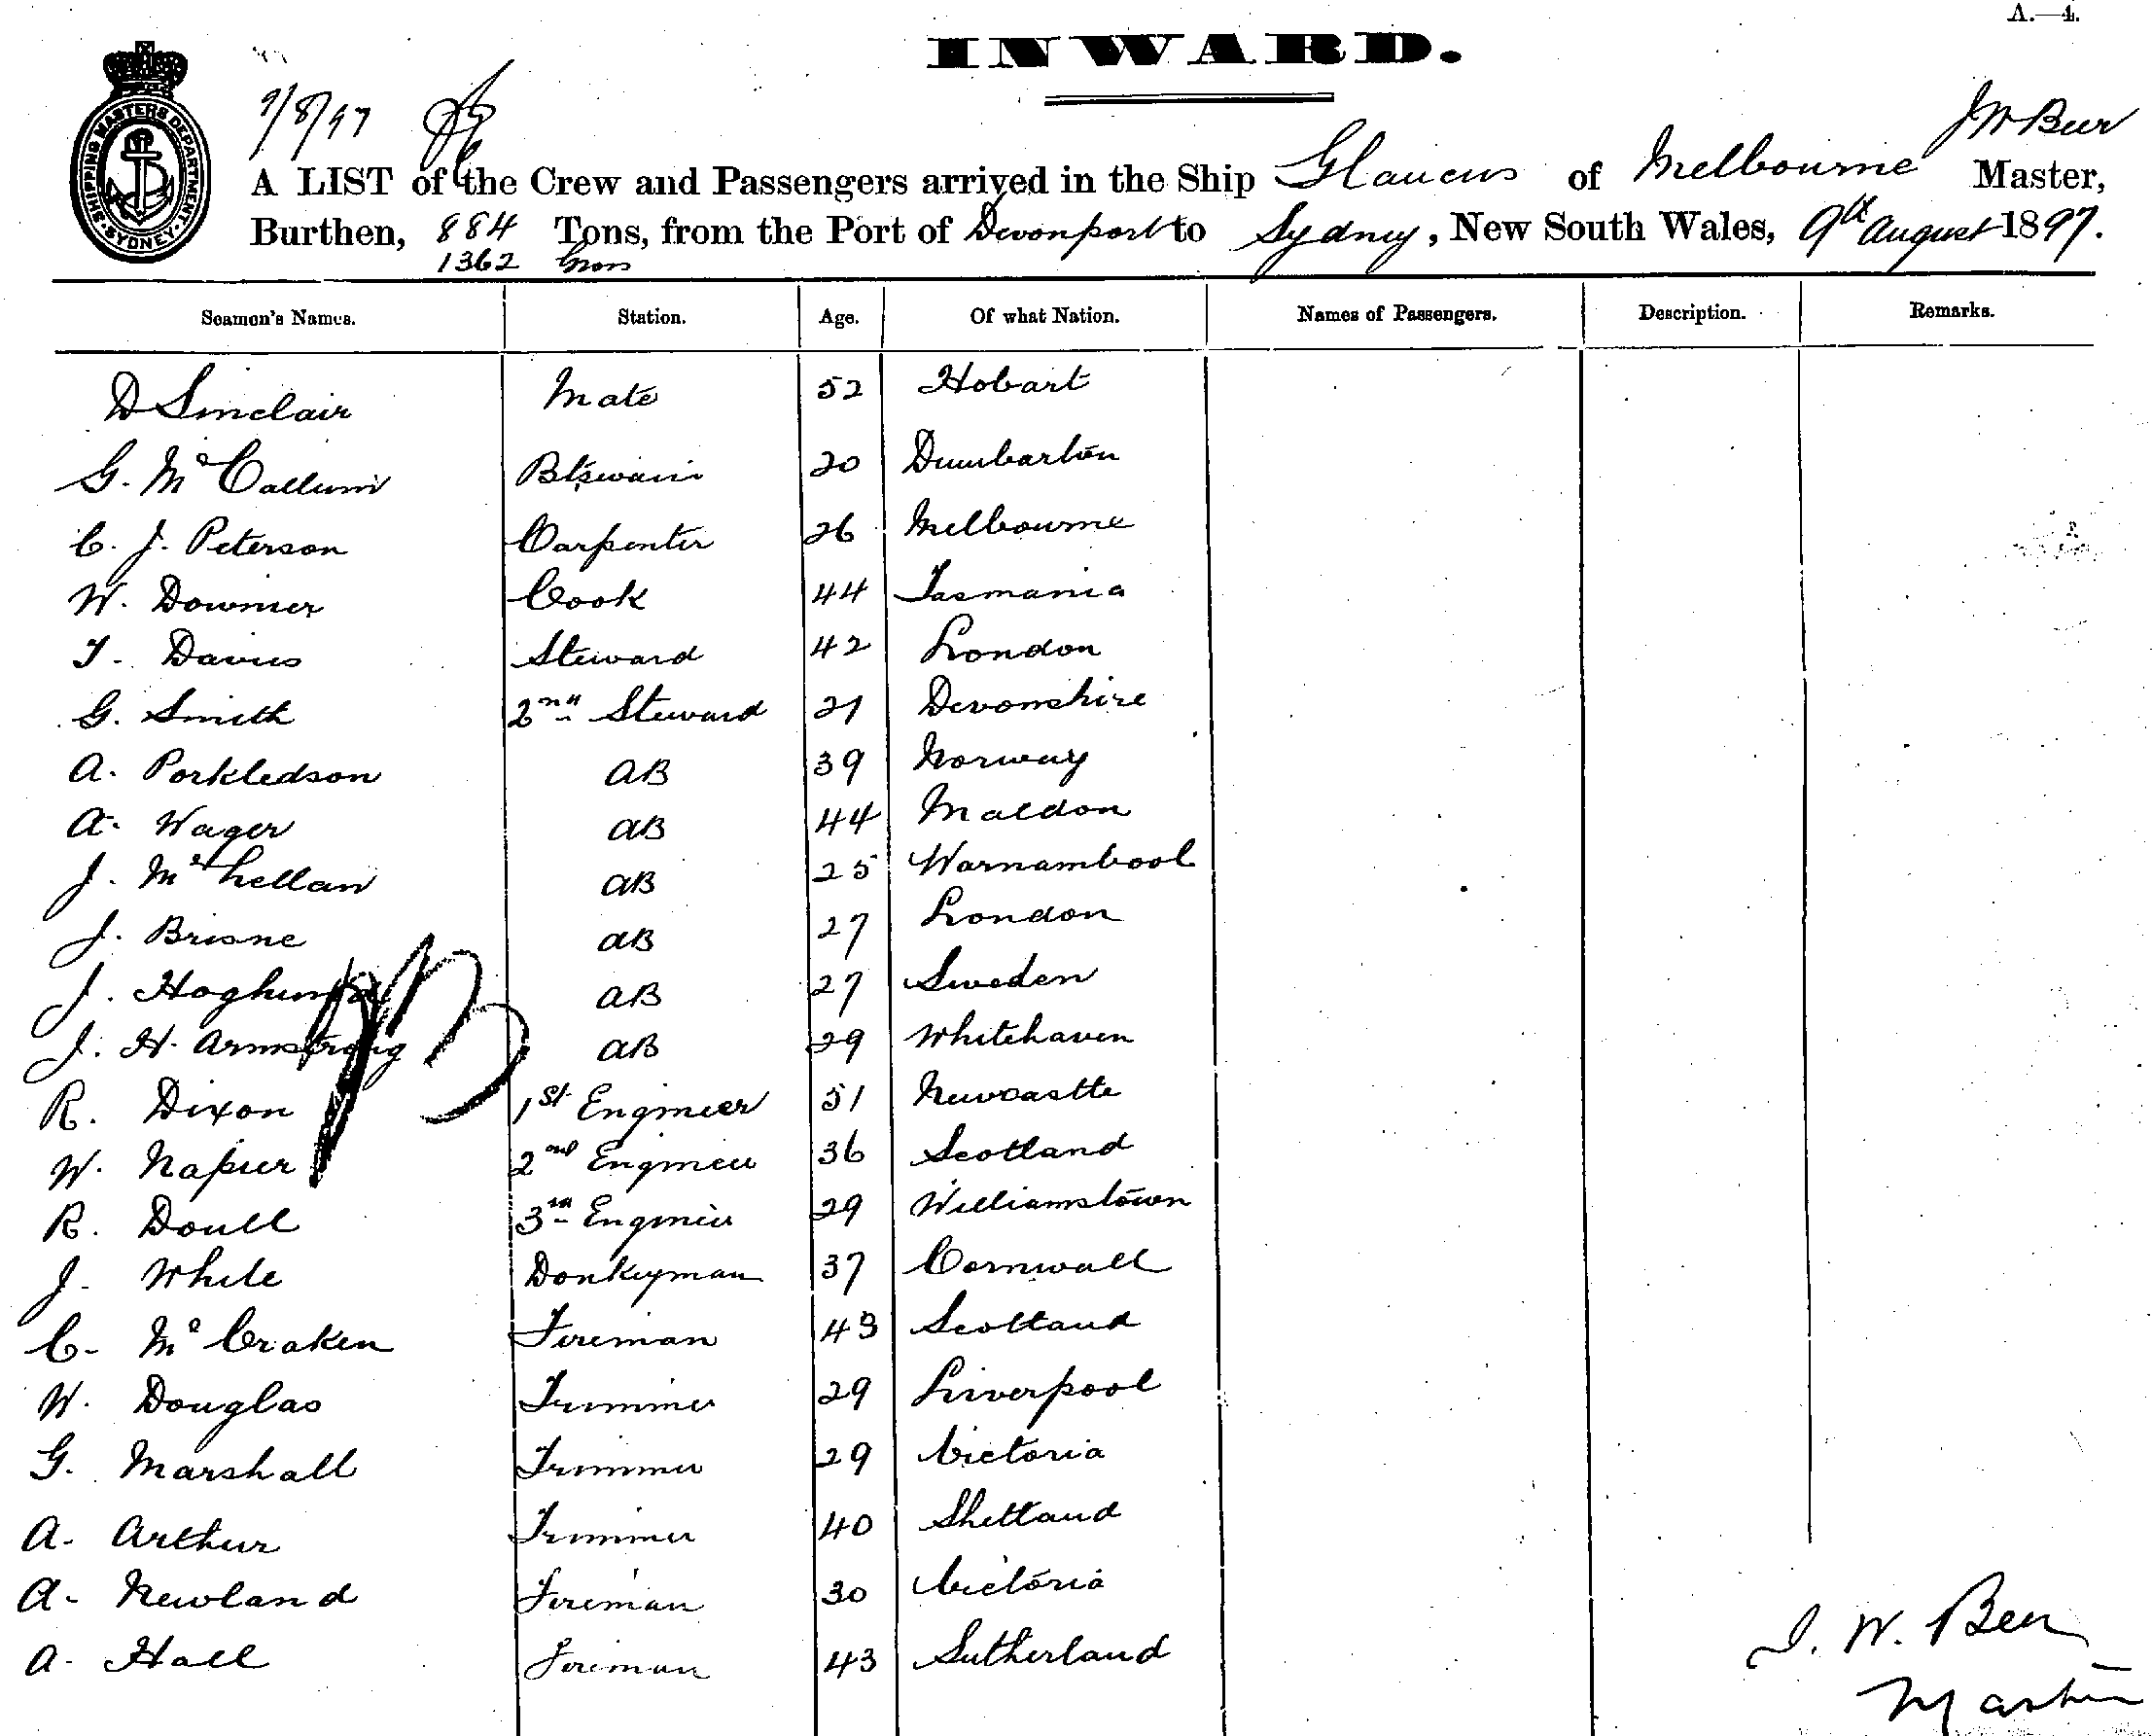 A.—4.
INWARD.
SHIPPING MASTERS DEPARTMENT SYDNEY
9/8/97
J W Beer
A LIST of the Crew and Passengers arrived in the Ship Glaucus of Melbourne Master,
Burthen, 884 Tons, from the Port of Devonport to Sydney, New South Wales, 9th August 1897.
1362 Gross
Seamen's Names. Station. Age. Of what Nation. Names of Passengers. Description. Remarks.
D Sinclair Mate 52 Hobart
G. McCallum Btswain 20 Dumbarton
C. J. Peterson Carpenter 26 Melbourne
W. Downer Cook 44 Tasmania
T. Davies Steward 42 London
G. Smith 2nd Steward 21 Devonshire
A. Porkledson AB 39 Norway
A. Wager AB 44 Maldon
J. McLellan AB 25 Warnambool
J. Brisne AB 27 London
J. AB 27 Sweden
J. H. Armstrong AB 29 Whitehaven
R. Dixon 1st Engineer 51 Newcastle
W. Napier 2nd Engineer 36 Scotland
R. Doull 3rd Engineer 29 Williamstown
J. White Donkeyman 37 Cornwall
C. McCraken Fireman 43 Scotland
W. Douglas Trimmer 29 Liverpool
G. Marshall Trimmer 29 Victoria
A. Arthur Trimmer 40 Shetland
A. Newland Fireman 30 Victoria
A. Hall Fireman 43 Sutherland
J. W. Beer
Master